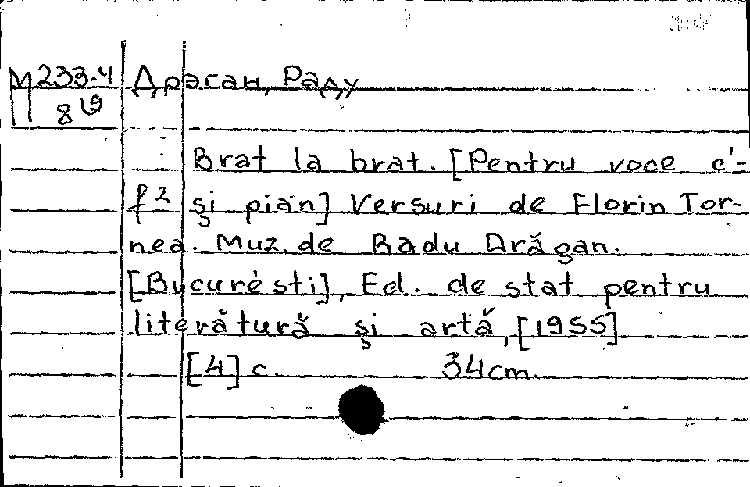 М 233-4 Дрэган, Раду
8 19
Brat la brat. [Pentru voce c'-
f² și pian] Versuri de Florin Tor-
nea. Muz. de Radu Drăgan.
[Bucurésti], Ed. de stat pentru
literătură și artă, [1955]
[4] c. 34cm.